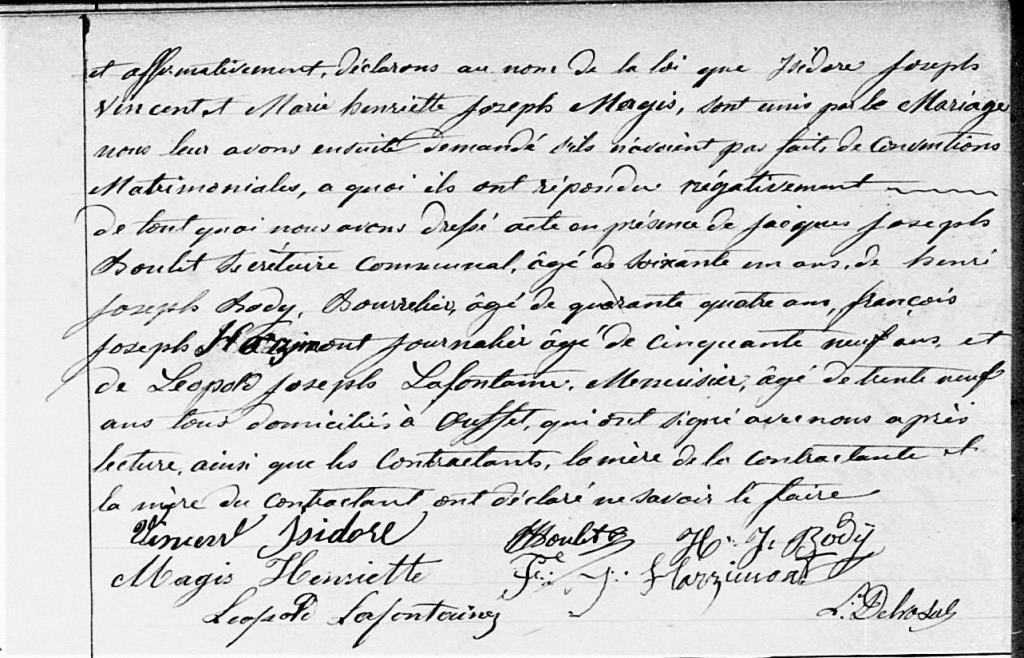 et affirmativement, déclarons au nom de la loi que Isidore Joseph
Vincent et Marie henriette Joseph Magis, sont unis par le Mariage
nous leur avons ensuite demandé s'ils n'avaient pas faits de Conventions
Matrimoniales, a quoi ils ont répondu négativement
de tout quoi nous avons dressé acte en présence de jacques Joseph
Boulet Secrétaire Communal, âgé de soixante un ans, de henri
Joseph Body, Bourrelier, âgé de quarante quatre ans, françois
Joseph Harzimont Journalier âgé de Cinquante neuf ans, et
de Léopold Joseph Lafontaine, Menuisier, âgé de trente neuf
ans tous domiciliés à Ouffet, qui ont signé avec nous après
lecture, ainsi que les Contractants, la mère de la contractante et
la mère du contractant ont déclaré ne savoir le faire
Vincent Isidore
Boulet
H. J. Body
Magis Henriette
F. J. Harzimont
Leopold Lafontaine